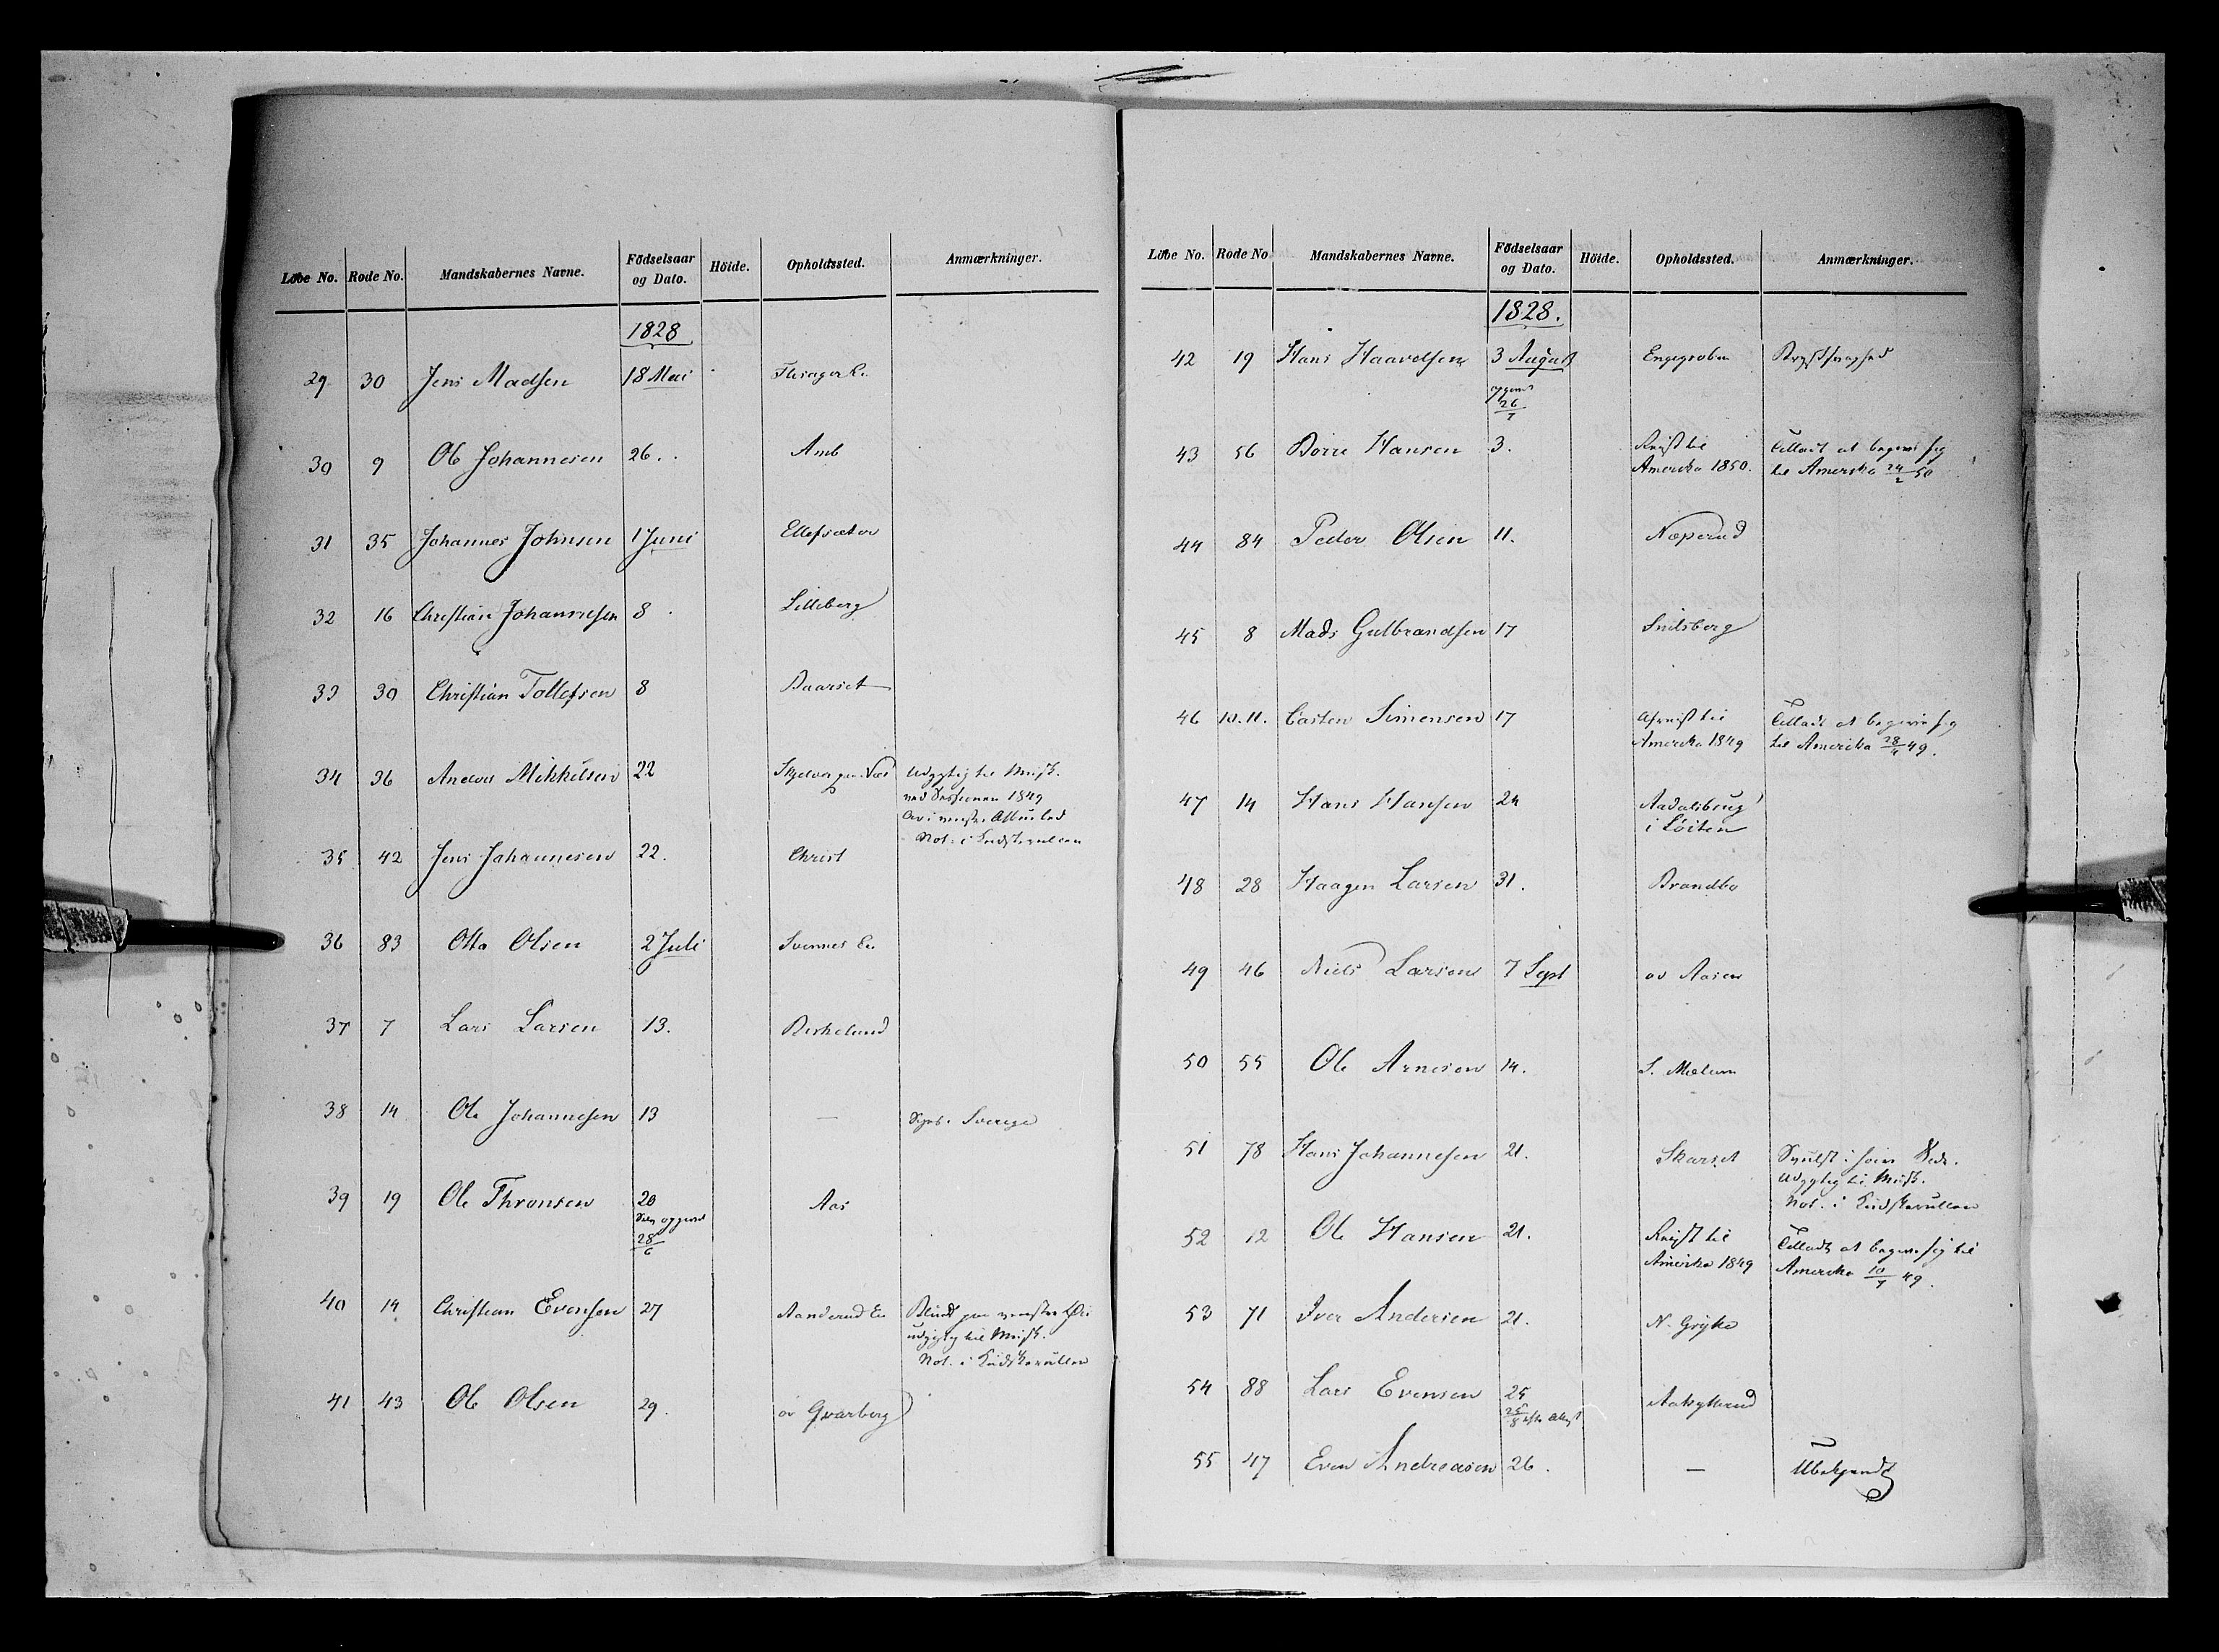 Løbe No. Rode No. Mandskabernes Navne. Födselsaar og Dato. Höide. Opholdssted. Anmærkninger.
1828
29 30 Jens Madsen 18 Mai
30 9 Ole Johannesen 26. Amb
31 35 Johannes Johnsen 1 Juni Ellefsæter
32 16 Christian Johannesen 8 Lilleberg
33 30 Christian Tollefsen 8 Baarset
34 36 Anders Mikkelsen 22
ved Sessionen 1849
35 42 Jens Johannesen 22. Christ
36 83 Otto Olsen 2 Juli Svennes Ei
37 7 Lars Larsen 13. Birkelund
38 14 Ole Johannesen 13 — Sverige
39 19 Ole Thronsen 20 Aas
28/6
40 14 Christian Evensen 27 Aanderud Ei Blind paa venstre Øie
udygtig til
Not. i
41 43 Ole Olsen 29. ov Gvarberg
Løbe No. Rode No Mandskabernes Navne. Födselsaar og Dato. Höide. Opholdssted. Anmærkninger.
1828.
42 19 Hans Haavelsen 3 August Brystsvaghed
26/7
43 56 Börre Hansen 3. Reist til Tilladt at begive sig
Amerika 1850. til Amerika 24/2 50
44 84 Peder Olsen 11. Næperud
45 8 Mads Gulbrandsen 17 Snilsberg
46 10.11. Casten Simensen 17 Afreist til Tilladt at begive sig
Amerika 1849 til Amerika 28/4 49.
47 14 Hans Hansen 24 Aadalsbrug
i Löiten
48 28 Haagen Larsen 31. Brandbo
49 46 Niels Larsen 7 Sept ov Aasen
50 55 Ole Arnesen 14. S. Mælum
51 78 Hans Johannesen 21. Skarset
Udygtig til
Not. i
52 12 Ole Hansen 21. Reist til Tilladt at begive sig til
Amerika 1849 Amerika 10/4 49.
53 71 Iver Andersen 21. N. Gryke
54 88 Lars Evensen 25
25/8
55 47 Even Andreasen 26. — Ubekjendt